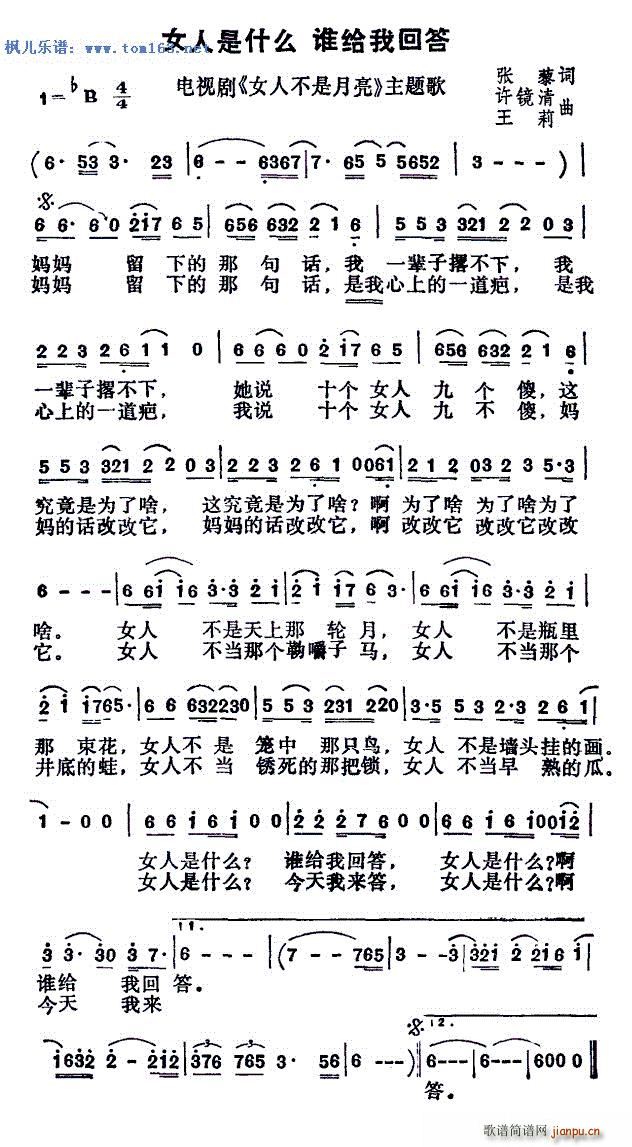 枫儿乐谱：www.tom163.net
女人是什么 谁给我回答
1=♭B 4/4
电视剧《女人不是月亮》主题歌
张藜词
许镜清
王莉曲
(6· 53 3· 23 | 6 - - 6367 | 7· 65 5 5652 | 3 - - - )
6 6· 6 0 2i7 6 5 | 656 632 2 1 6 | 5 5 3 321 2 2 0 3 |
妈妈 留下的那句话，我一辈子撂不下，我
妈妈 留下的那句话，是我心上的一道疤，是我
2 2 3 2 6 1 1 0 | 6 6 6 0 2 i7 6 5 | 656 632 2 1 6 |
一辈子撂不下， 她说 十个女人九个傻，这
心上的一道疤， 我说 十个女人九不傻，妈
5 5 3 321 2 2 0 3 | 2 2 3 2 6 1 0 061 | 2 1 2 03 2 3 5·3 |
究竟是为了啥， 这究竟是为了啥？啊 为了啥 为了啥为了
妈的话改改它， 妈妈的话改改它，啊 改改它 改改它改改
6 - - - | 6 6i i6 3·3 2 i | 2 i i7 6 3· | 6 6i i6 3·3 2 i |
啥。 女人 不是天上那轮月，女人 不是瓶里
它。 女人 不当那个勒嚼子马，女人 不当那个
2 i i765· | 6 6 632230 | 5 5 3 231 220 | 3·5 5 3 2·3 2 6 1 |
那束花，女人不是笼中那只鸟，女人 不是墙头挂的画。
井底的蛙，女人不当锈死的那把锁，女人 不当早熟的瓜。
1 - 0 0 | 6 6 i 6 i 0 0 | 2 2 2 7 6 0 0 | 6 6 i 6 i 00i2 |
女人是什么？ 谁给我回答， 女人是什么？啊
女人是什么？ 今天我来答， 女人是什么？啊
3 3· 30 3 7· | 6 - - - | (7 - - 765 | 3 - - 3 | 3 32i 2 2i6 i |
1.
谁给 我回答。
今天 我来
i632 2 - 2i2 | 376 765 3· 56 | 6 - - - ) 6--- | 6--- | 6000 ‖
12.
答。
歌谱简谱网
jianpu.cn